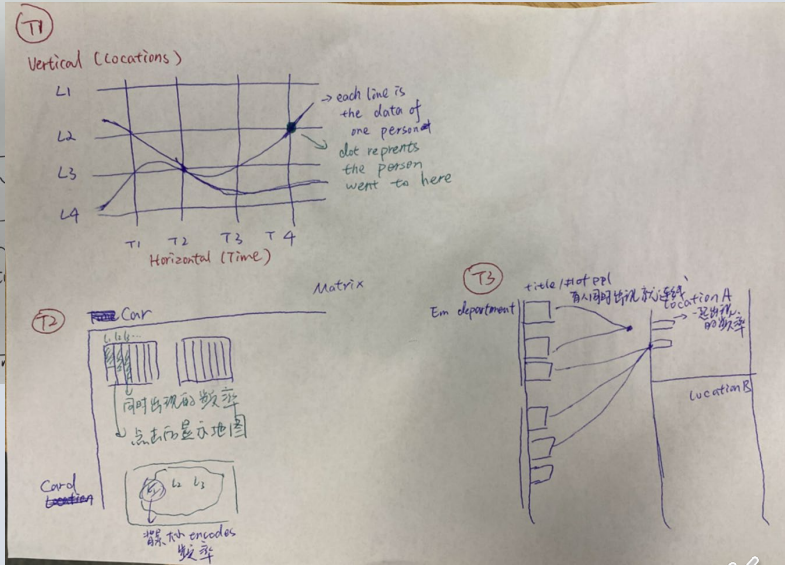 T1
Vertical (Locations)
L1
L2
L3
L4
T1 T2 T3 T4
Horizontal (Time)
→ each line is
the data of
one person
dot reprents
the person
went to here
Matrix
T2
Car
L1 L2 L3 ...
同时出现的频率
点击后显示地图
Card
L1 L2 L3
背景大小 encodes
频率
T3
title / # of ppl
有人同时出现就连线
Em department
Location A
→ 一起出现
的频率
Location B